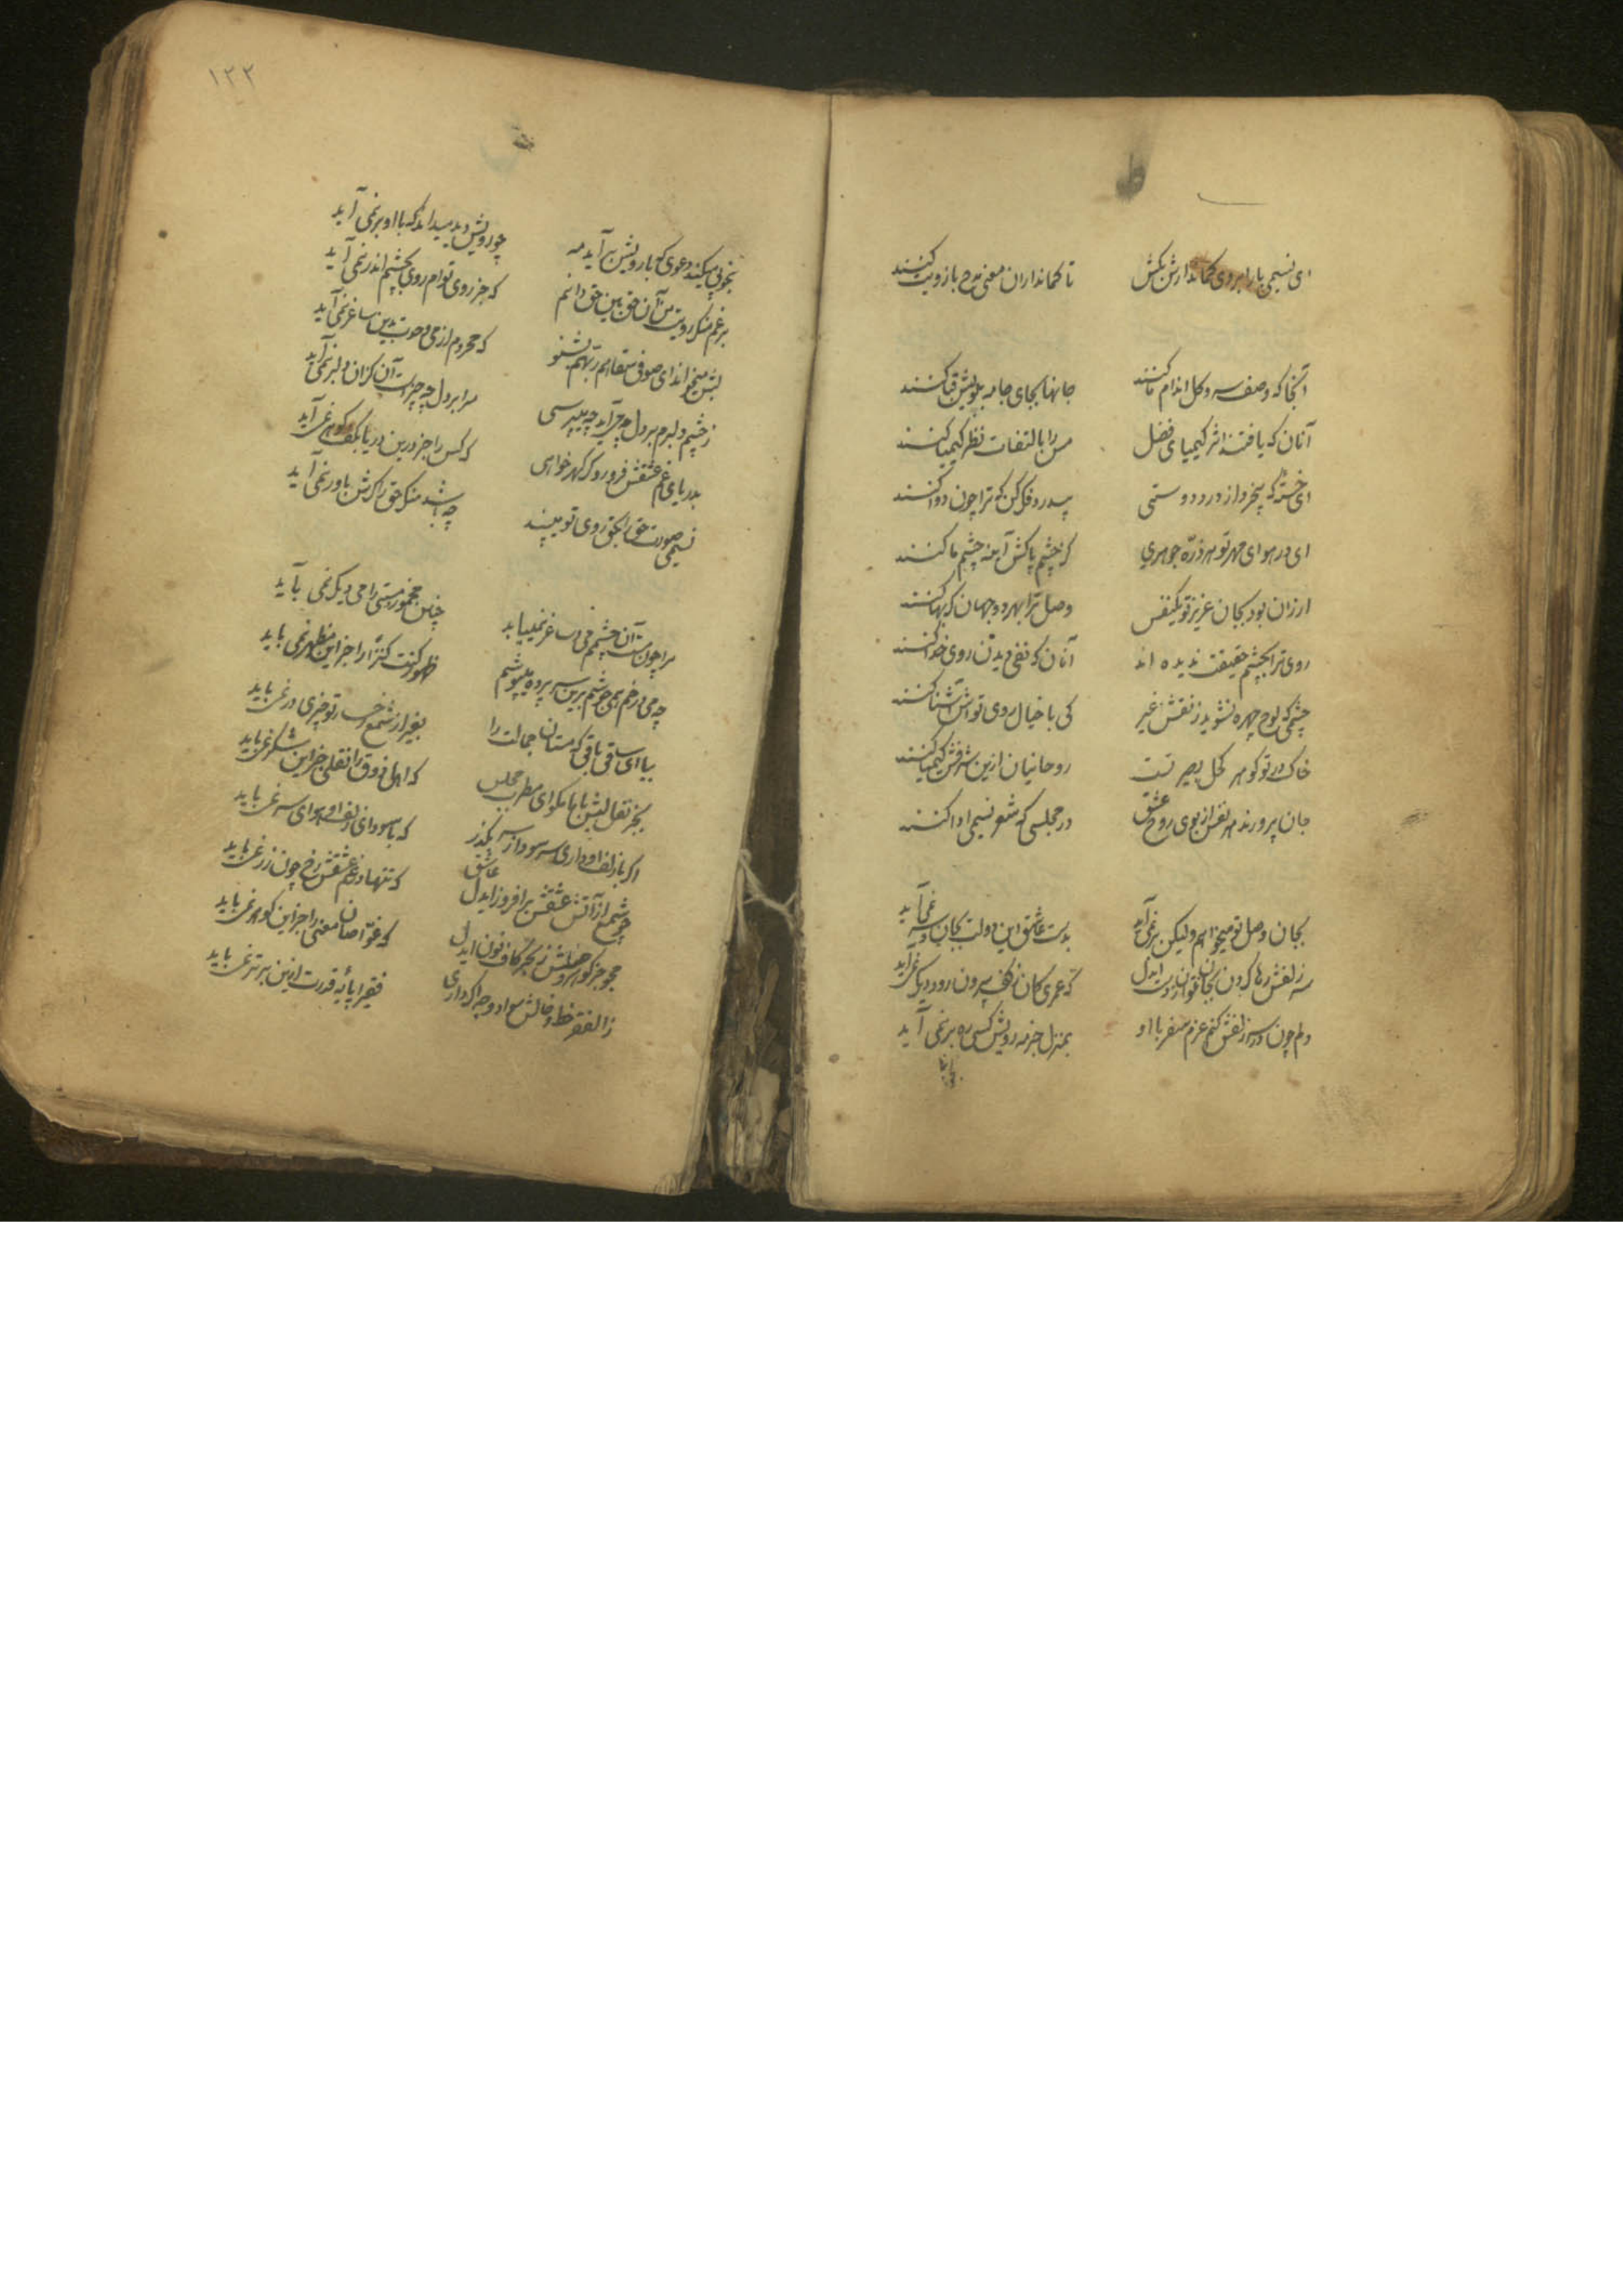 ای نسیمی با ابروی کماندارش بکش تا کمانداران معنی مدح بازویت کنند
آنجا که وصف سرو گل اندام ما کنند جانها بجای جامه بپایش قبا کنند
آنان که یافتند اثر کیمیای فضل مس را بالتفات نظر کیمیا کنند
ای خسته که بیخبر از درد دوستی پیدرد فکر کن که ترا چون دوا کنند
ای در هوای مهر تو هر ذره جوهری کز چشم پاکش آینه چشم ما کنند
ارزان بود بجان عزیز تو یکنفس وصل ترا بهر دو جهان گر بها کنند
روی ترا بچشم حقیقت ندیده اند آنان که نفی دیدن روی خدا کنند
چشمی که لوح چهره نشوید ز نقش غیر کی با خیال روی تواش آشنا کنند
خاک در تو گوهر کحل بصیرتست روحانیان ازین شرفش کیمیا کنند
جان پرورند هر نفس از بوی روح عشق در مجلسی که شعر نسیمی ادا کنند
بجان وصل تو میخواهم ولیکن بر نمی آید بدست عاشق این دولت بجان و سر نمی آید
سر زلفش رها کردن بجان نتوان ز دست ایدل که عمری کان ز کف بیرون رود دیگر نمی آید
دلم چون در سر زلفش کنم عزم سفر با او بمنزل جز مه رویش کسی ره بر نمی آید
۱۲۲
بخوبی میکند دعوی که با رویش بر آید مه چو رویش دید میداند که با او بر نمی آید
برغم منکر رویت من آن حق بین حق دانم که جز روی توام روی بچشم اندر نمی آید
لبش میخواند ای صوفی سقاهم ربهم بشنو که محروم از می وحدت بدین ساغر نمی آید
ز چشم دلبرم بر دل چه آید چه میپرسی مرا بر دل چه چیزست آن کزان دلبر نمی آید
بدریای غم عشقش فرو رو گر گهر خواهی که کس را جز درین دریا بکف گوهر نمی آید
نسیمی صورت حق را بحق روی تو میبیند چه باشد منکر حق را گرش باور نمی آید
مرا چون مست آن چشمم می و ساغر نمیباید چنین مخمور مستی را می دیگر نمی باید
چو می در خم همی جوشم برین سر پرده میپوشم ظهور کنت کنزا را جز این مظهر نمی باید
بیا ای ساقی باقی که مستان جمالت را بغیر از شمع رخسار تو چیزی در نمی باید
بجز نقل لبش با ما مگو ای مطرب مجلس که اهل ذوق را نقلی جز این شکر نمی باید
اگر با زلف او داری سر سودا ز سر بگذر که با سودای زلف او هوای سر نمی باید
چو شمع از آتش عشقش برافروز ایدل عاشق که تنها در غم عشقش رخ چون زر نمی باید
مجو جز گوهر وصلش ز بحر کاف و نون ایدل که غواصان معنی را جز این گوهر نمی باید
ز الفقر خط و خالش سواد وجه اگر داری فقیر اپایه قدرت ازین برتر نمی باید